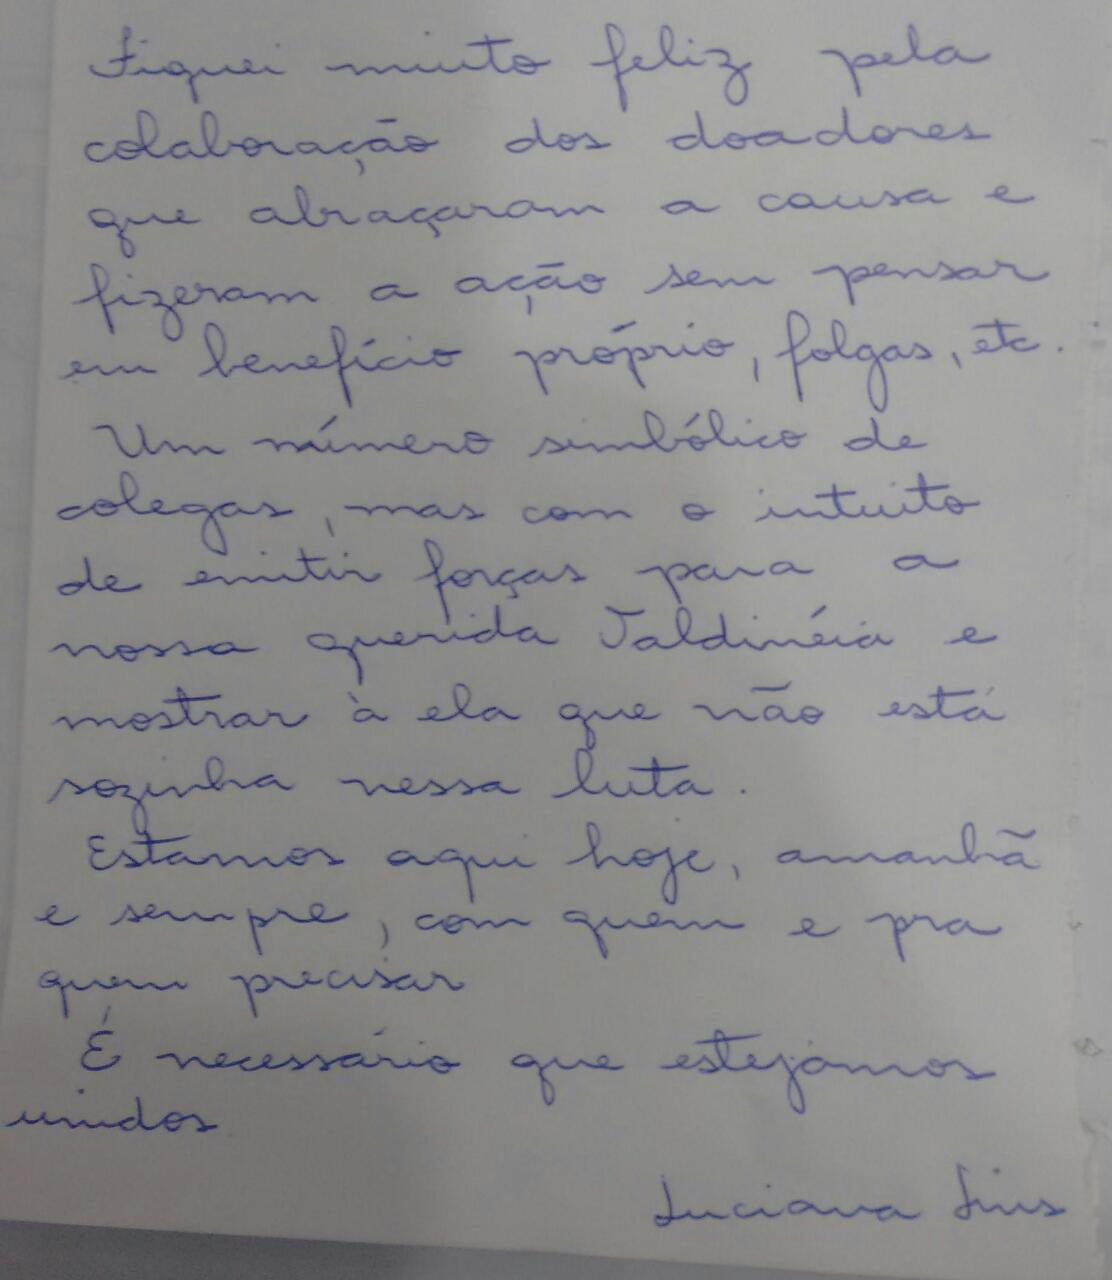 Fiquei muito feliz pela
colaboração dos doadores
que abraçaram a causa e
fizeram a ação sem pensar
em benefício próprio, folgas, etc.
Um número simbólico de
colegas, mas com o intuito
de emitir forças para a
nossa querida Valdinéia e
mostrar à ela que não está
sozinha nessa luta.
Estamos aqui hoje, amanhã
e sempre, com quem e pra
quem precisar
É necessário que estejamos
unidos
Luciana